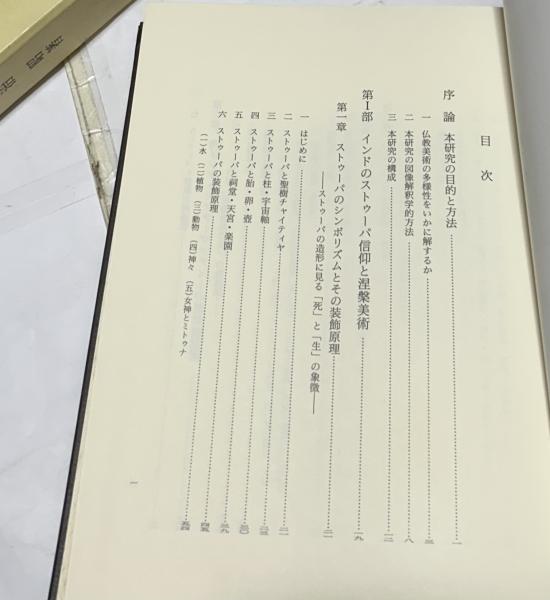 目次
序論 本研究の目的と方法……一
一 仏教美術の多様性をいかに解するか……三
二 本研究の図像解釈学的方法……八
三 本研究の構成……一二
第Ⅰ部 インドのストゥーパ信仰と涅槃美術……一九
第一章 ストゥーパのシンボリズムとその装飾原理……二一
――ストゥーパの造形に見る「死」と「生」の象徴――
一 はじめに……二一
二 ストゥーパと聖樹チャイティヤ
三 ストゥーパと柱・宇宙軸……二三
四 ストゥーパと胎・卵・壺……三〇
五 ストゥーパと祠堂・天宮・楽園……三九
六 ストゥーパの装飾原理……四五
(一)水 (二)植物 (三)動物 (四)神々 (五)女神とミトゥナ……五四